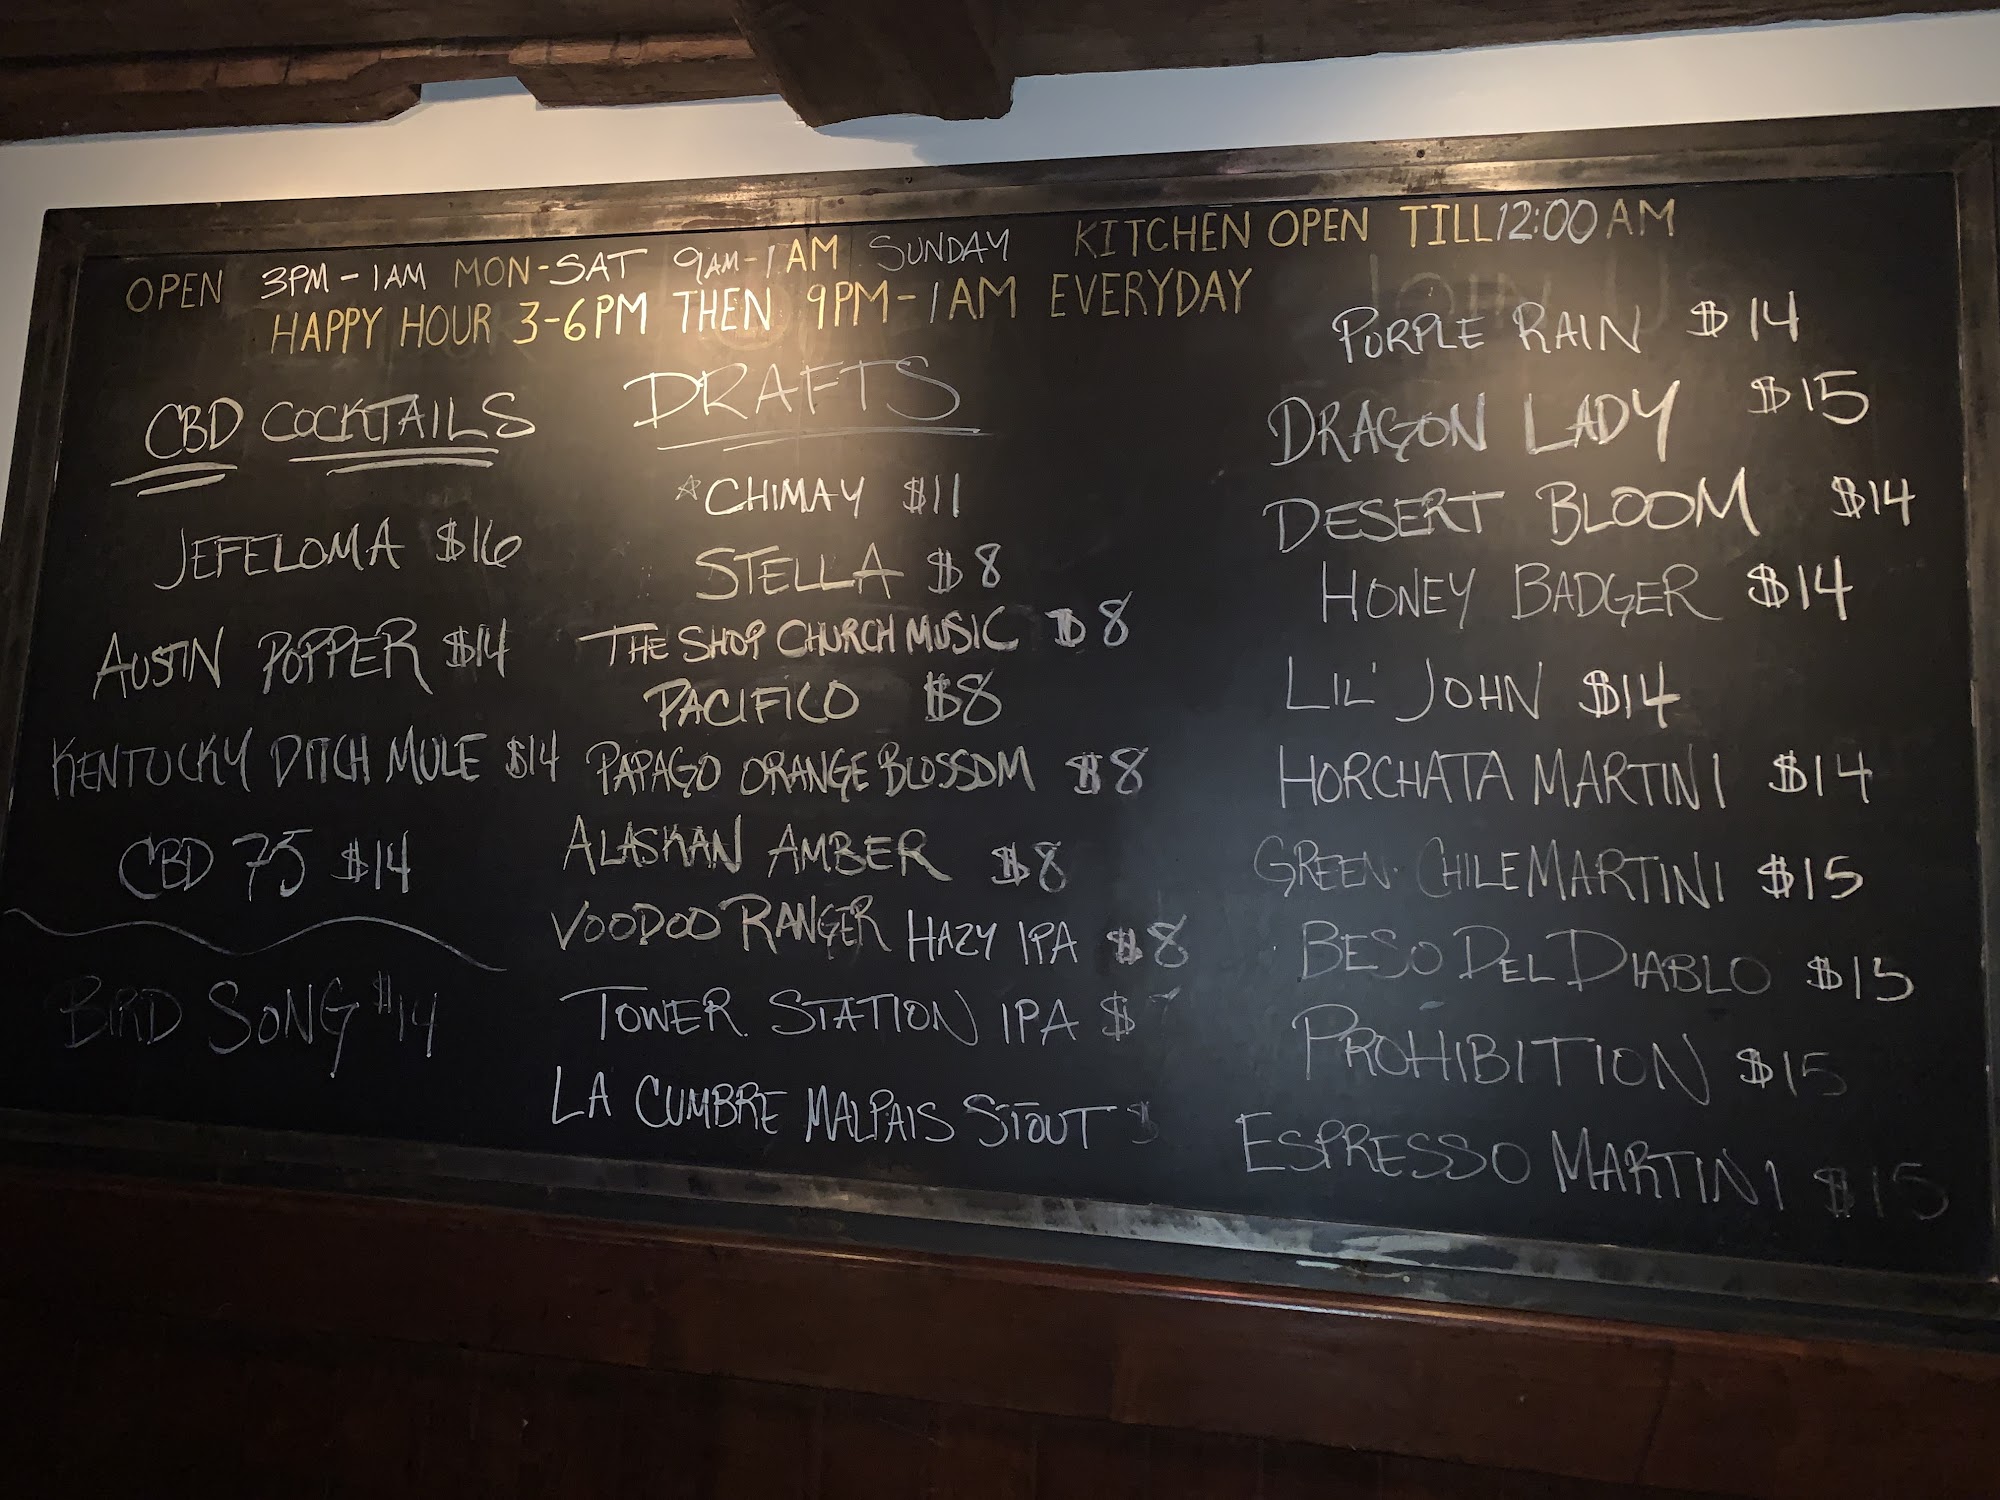 OPEN 3PM-1AM MON-SAT 9AM-1AM SUNDAY KITCHEN OPEN TILL 12:00AM
HAPPY HOUR 3-6PM THEN 9PM-1AM EVERYDAY
CBD COCKTAILS
JEFELOMA $16
AUSTIN POPPER $14
KENTUCKY DITCH MULE $14
CBD 75 $14
BIRD SONG $14
DRAFTS
☆CHIMAY $11
STELLA $8
THE SHOP CHURCH MUSIC $8
PACIFICO $8
PAPAGO ORANGE BLOSSOM $8
ALASKAN AMBER $8
VOODOO RANGER HAZY IPA $8
TOWER STATION IPA $
LA CUMBRE MALPAIS STOUT $
JOIN US
PURPLE RAIN $14
DRAGON LADY $15
DESERT BLOOM $14
HONEY BADGER $14
LIL' JOHN $14
HORCHATA MARTINI $14
GREEN CHILE MARTINI $15
BESO DEL DIABLO $15
PROHIBITION $15
ESPRESSO MARTINI $15